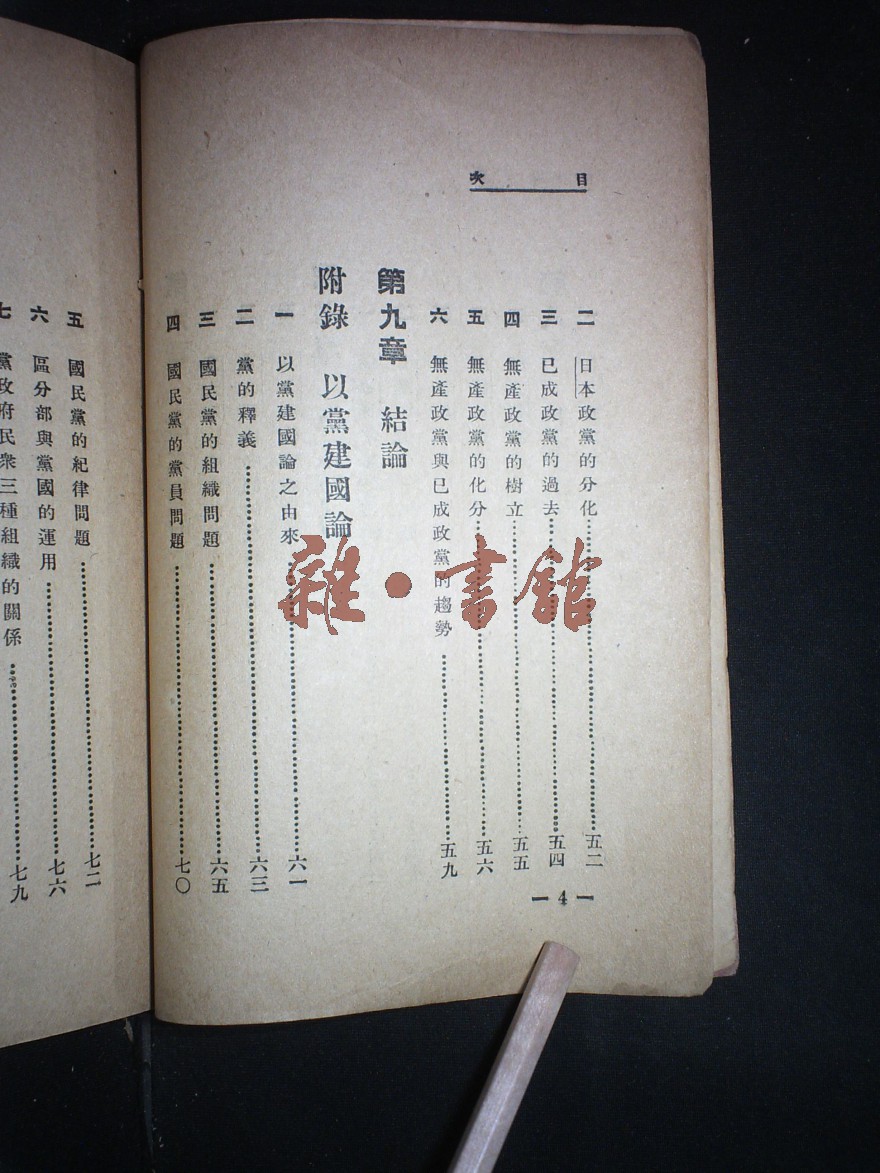 目次
二 日本政黨的分化……五二
三 已成政黨的過去……五四
四 無產政黨的樹立……五五
五 無產政黨的化分……五六
六 無產政黨與已成政黨的趨勢……五九
第九章 結論
附錄 以黨建國論
一 以黨建國論之由來……六一
二 黨的釋義……六三
三 國民黨的組織問題……六五
四 國民黨的黨員問題……七〇
— 4 —
五 國民黨的紀律問題……七二
六 區分部與黨國的運用……七六
七 黨政府民衆三種組織的關係……七九
雜·書館